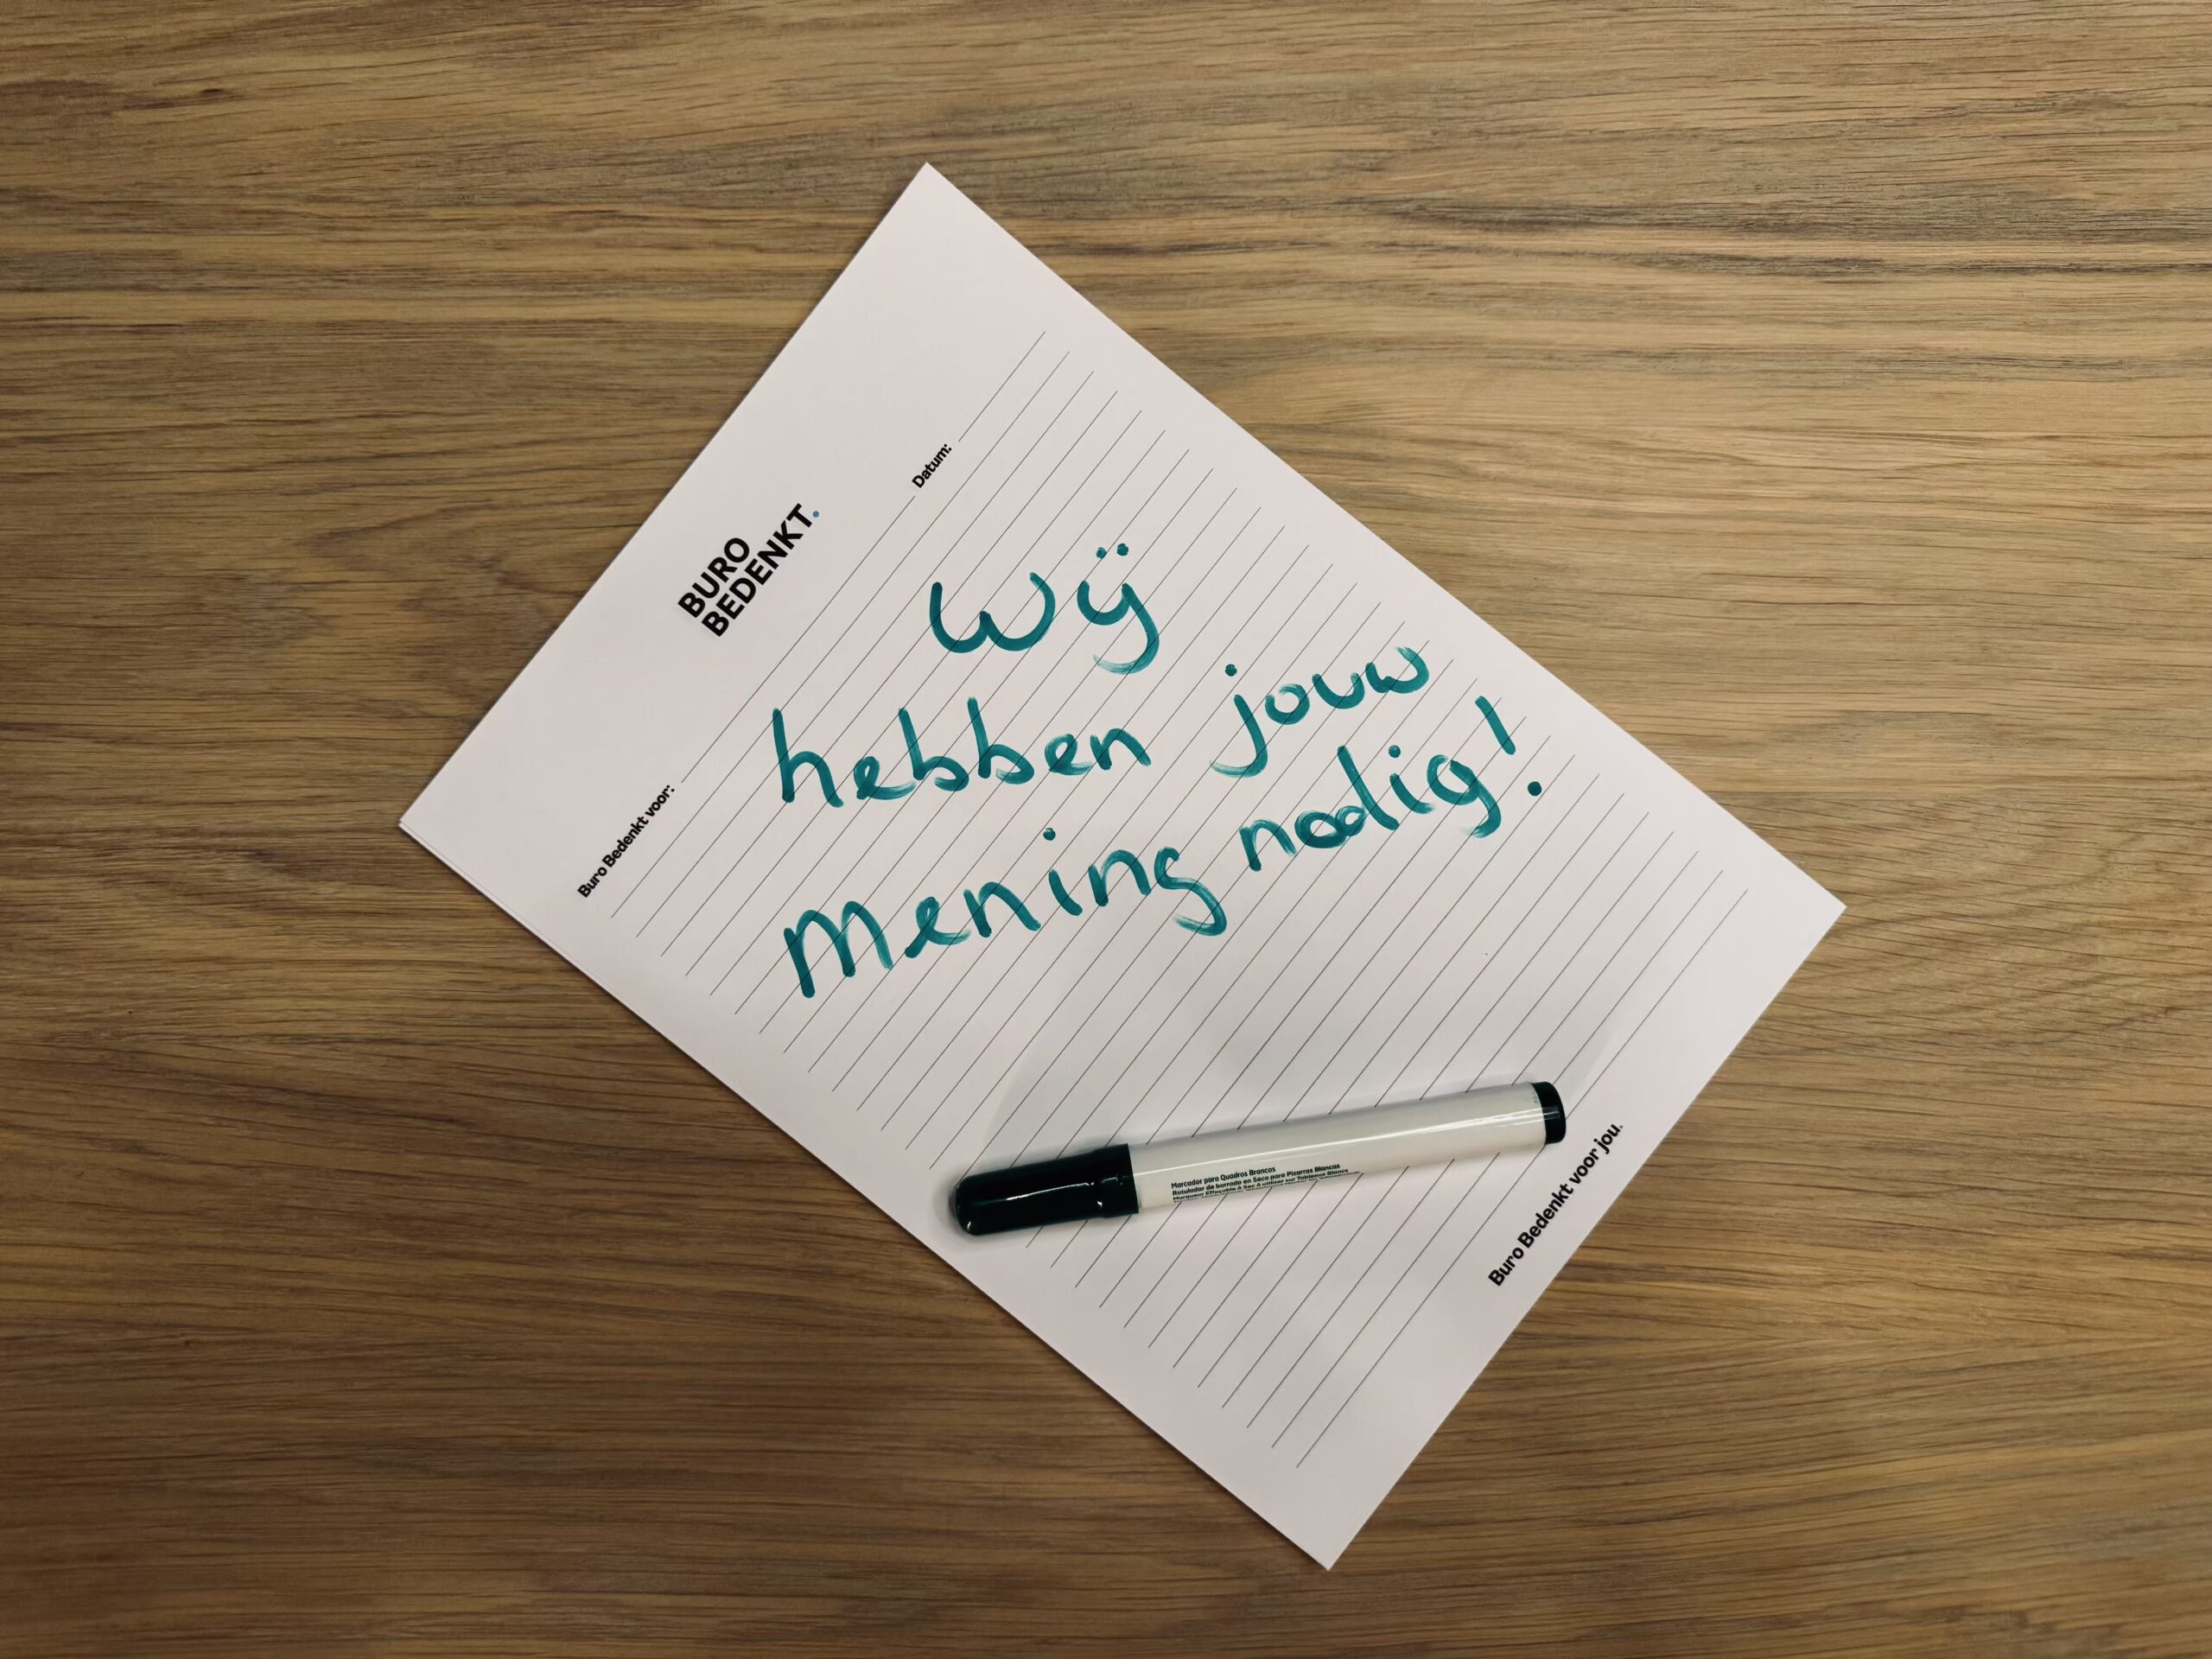 BURO
BEDENKT.
Datum:
Buro Bedenkt voor:
Wij
hebben jouw
mening nodig!
Marcador para Quadros Brancos
Rotulador de borrado en Seco para Pizarras Blancas
Marqueur Effaçable à Sec à utiliser sur Tableaux Blancs
Buro Bedenkt voor jou.